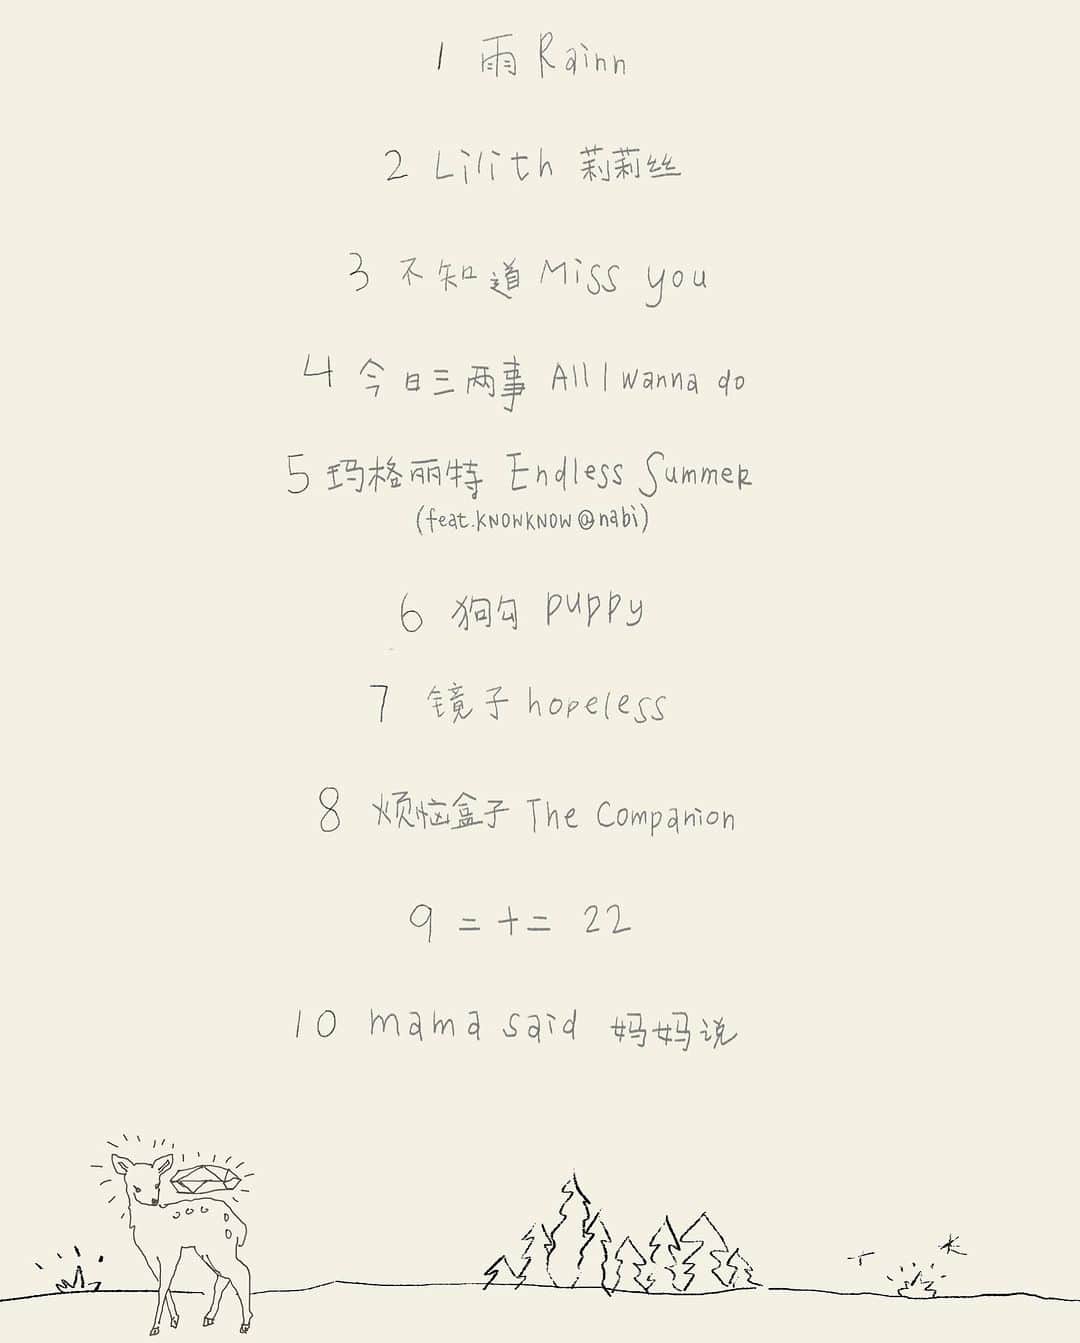 1 雨 Rainn
2 Lilith 莉莉丝
3 不知道 Miss you
4 今日三两事 All I wanna do
5 玛格丽特 Endless Summer
(feat.KNOWKNOW@nabi)
6 狗勾 puppy
7 镜子 hopeless
8 烦恼盒子 The Companion
9 二十二 22
10 mama said 妈妈说